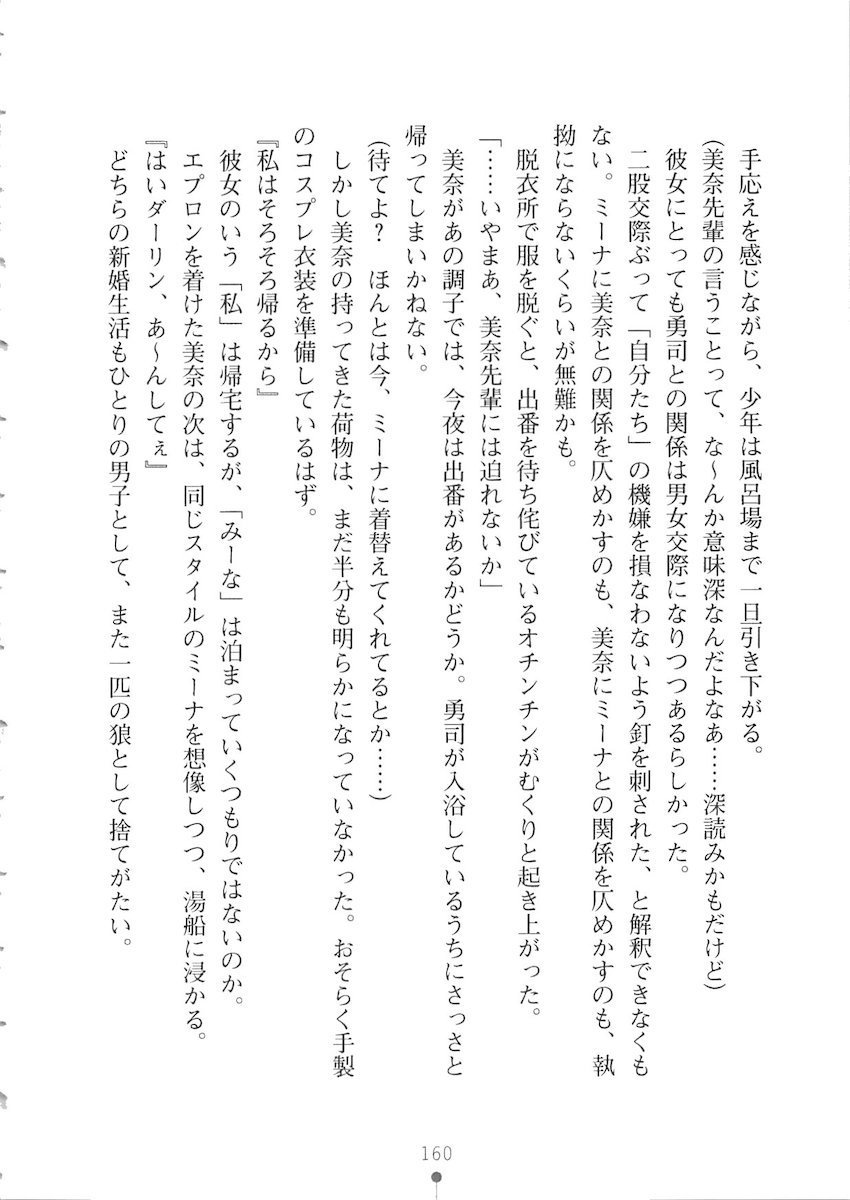 手応えを感じながら、少年は風呂場まで一旦引き下がる。
(美奈先輩の言うことって、な～んか意味深なんだよなあ……深読みかもだけど)
彼女にとっても勇司との関係は男女交際になりつつあるらしかった。
二股交際ぶって「自分たち」の機嫌を損なわないよう釘を刺された、と解釈できなくも
ない。ミーナに美奈との関係を仄めかすのも、美奈にミーナとの関係を仄めかすのも、執
拗にならないくらいが無難かも。
脱衣所で服を脱ぐと、出番を待ち侘びているオチンチンがむくりと起き上がった。
「……いやまあ、美奈先輩には迫れないか」
美奈があの調子では、今夜は出番があるかどうか。勇司が入浴しているうちにさっさと
帰ってしまいかねない。
(待てよ？　ほんとは今、ミーナに着替えてくれてるとか……)
しかし美奈の持ってきた荷物は、まだ半分も明らかになっていなかった。おそらく手製
のコスプレ衣装を準備しているはず。
『私はそろそろ帰るから』
彼女のいう「私」は帰宅するが、「みーな」は泊まっていくつもりではないのか。
エプロンを着けた美奈の次は、同じスタイルのミーナを想像しつつ、湯船に浸かる。
『はいダーリン、あ～んしてぇ』
どちらの新婚生活もひとりの男子として、また一匹の狼として捨てがたい。
160